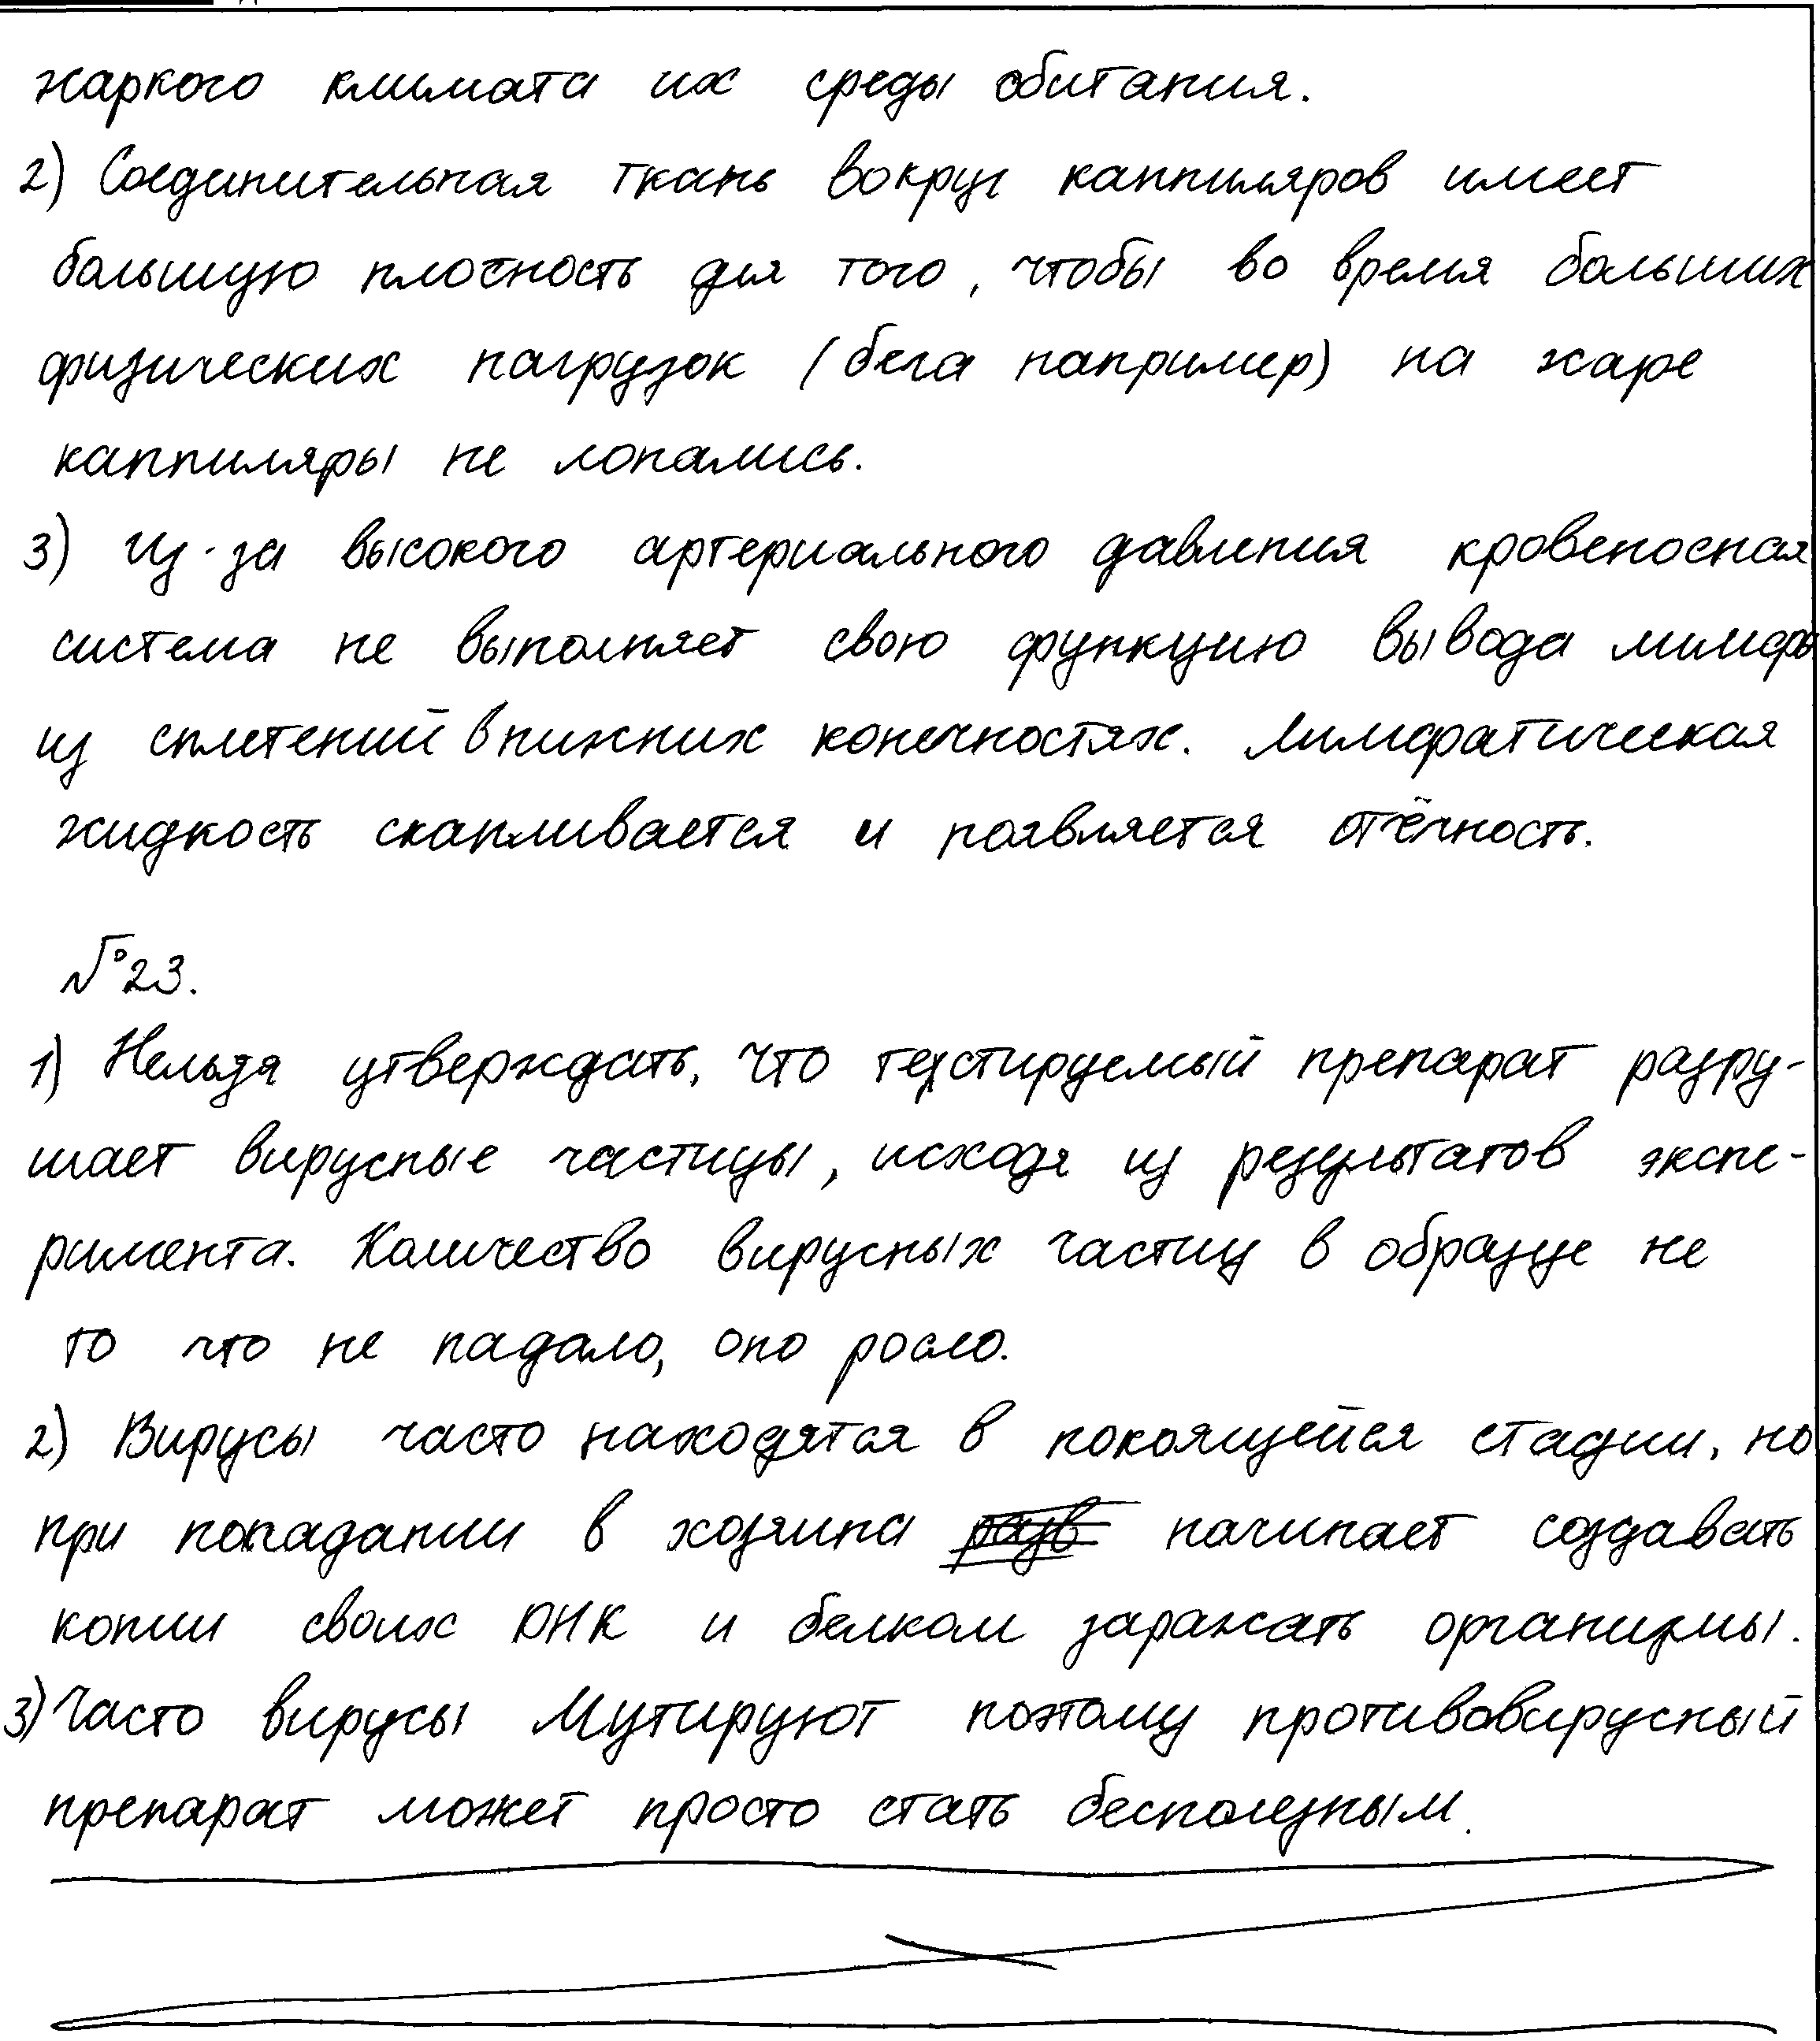 жаркого климата их среды обитания.
2) Соединительная ткань вокруг каппиляров имеет
большую плотность для того, чтобы во время больших
физических нагрузок (бега например) на жаре
каппиляры не лопались.
3) Из-за высокого артериального давления кровеносная
система не выполняет свою функцию вывода лимфы
из сплетений в нижних конечностях. Лимфатическая
жидкость скапливается и появляется отёчность.
№23.
1) Нельзя утверждать, что тестируемый препарат разру-
шает вирусные частицы, исходя из результатов экспе-
римента. Количество вирусных частиц в образце не
то что не падало, оно росло.
2) Вирусы часто находятся в покоящейся стадии, но
при попадании в хозяина начинает создавать
копии своих ДНК и белком заражать организмы.
3) Часто вирусы мутируют поэтому противовирусный
препарат может просто стать бесполезным.